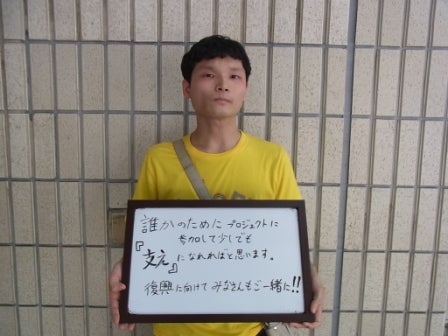 誰かのためにプロジェクトに
参加して少しでも
『支え』になれればと思います。
復興に向けてみなさんもご一緒に!!